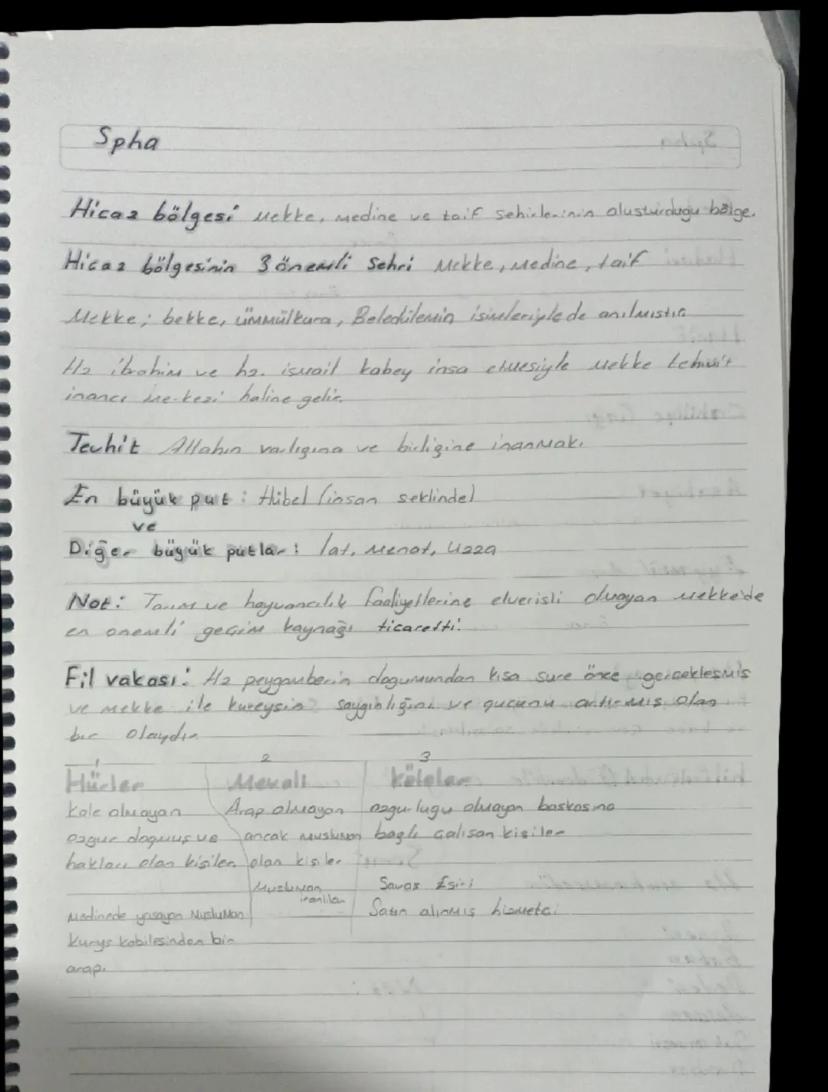 Spha
Hicaz bölgesi Mekke, Medine ve taif sehirlerinin olusturdugu bölge.
Hicaz bölgesinin 3 önemli Sehri Mekke, Medine, taif
Mekke; bekke, ümmülkura, Beledülemin isimleriylede anılmıstır
Hz ibrahim ve hz. ismail kabey insa etmesiyle Mekke tehvit
inancı merkezi haline gelir.
Tevhit Allahın varlıgına ve birligine inanmak.
En büyük put: Hübel (insan seklinde)
ve
Diğer büyük putlar: lat, Menat, Uzza
Not: Tarım ve hayvancılık faaliyetlerine elverisli olmayan Mekke'de
en onemli geçim kaynağı ticaretti.
Fil vakası: Hz peygamberin dogumundan kısa sure önce gerceklesmis
ve mekke ile kureysin saygınlığını ve gucunu arttırmıs olan
bir olaydır
1 2 3
Hürler Mevali köleler
kole olmayan Arap olmayan ozgurlugu olmayan baskasına
ozgur dogmus ve ancak musluman baglı calisan kisiler
hakları olan kisiler olan kisiler
Musluman Savas Esiri
iranlılar
Medinede yasayan Musluman Satın alınmıs hizmetci
Kurys kabilesinden bir
arap.